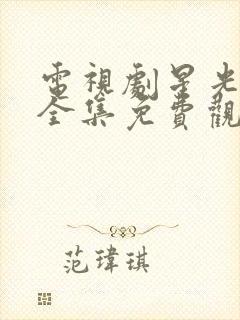 電視劇星光
全集免費觀
范瑋琪